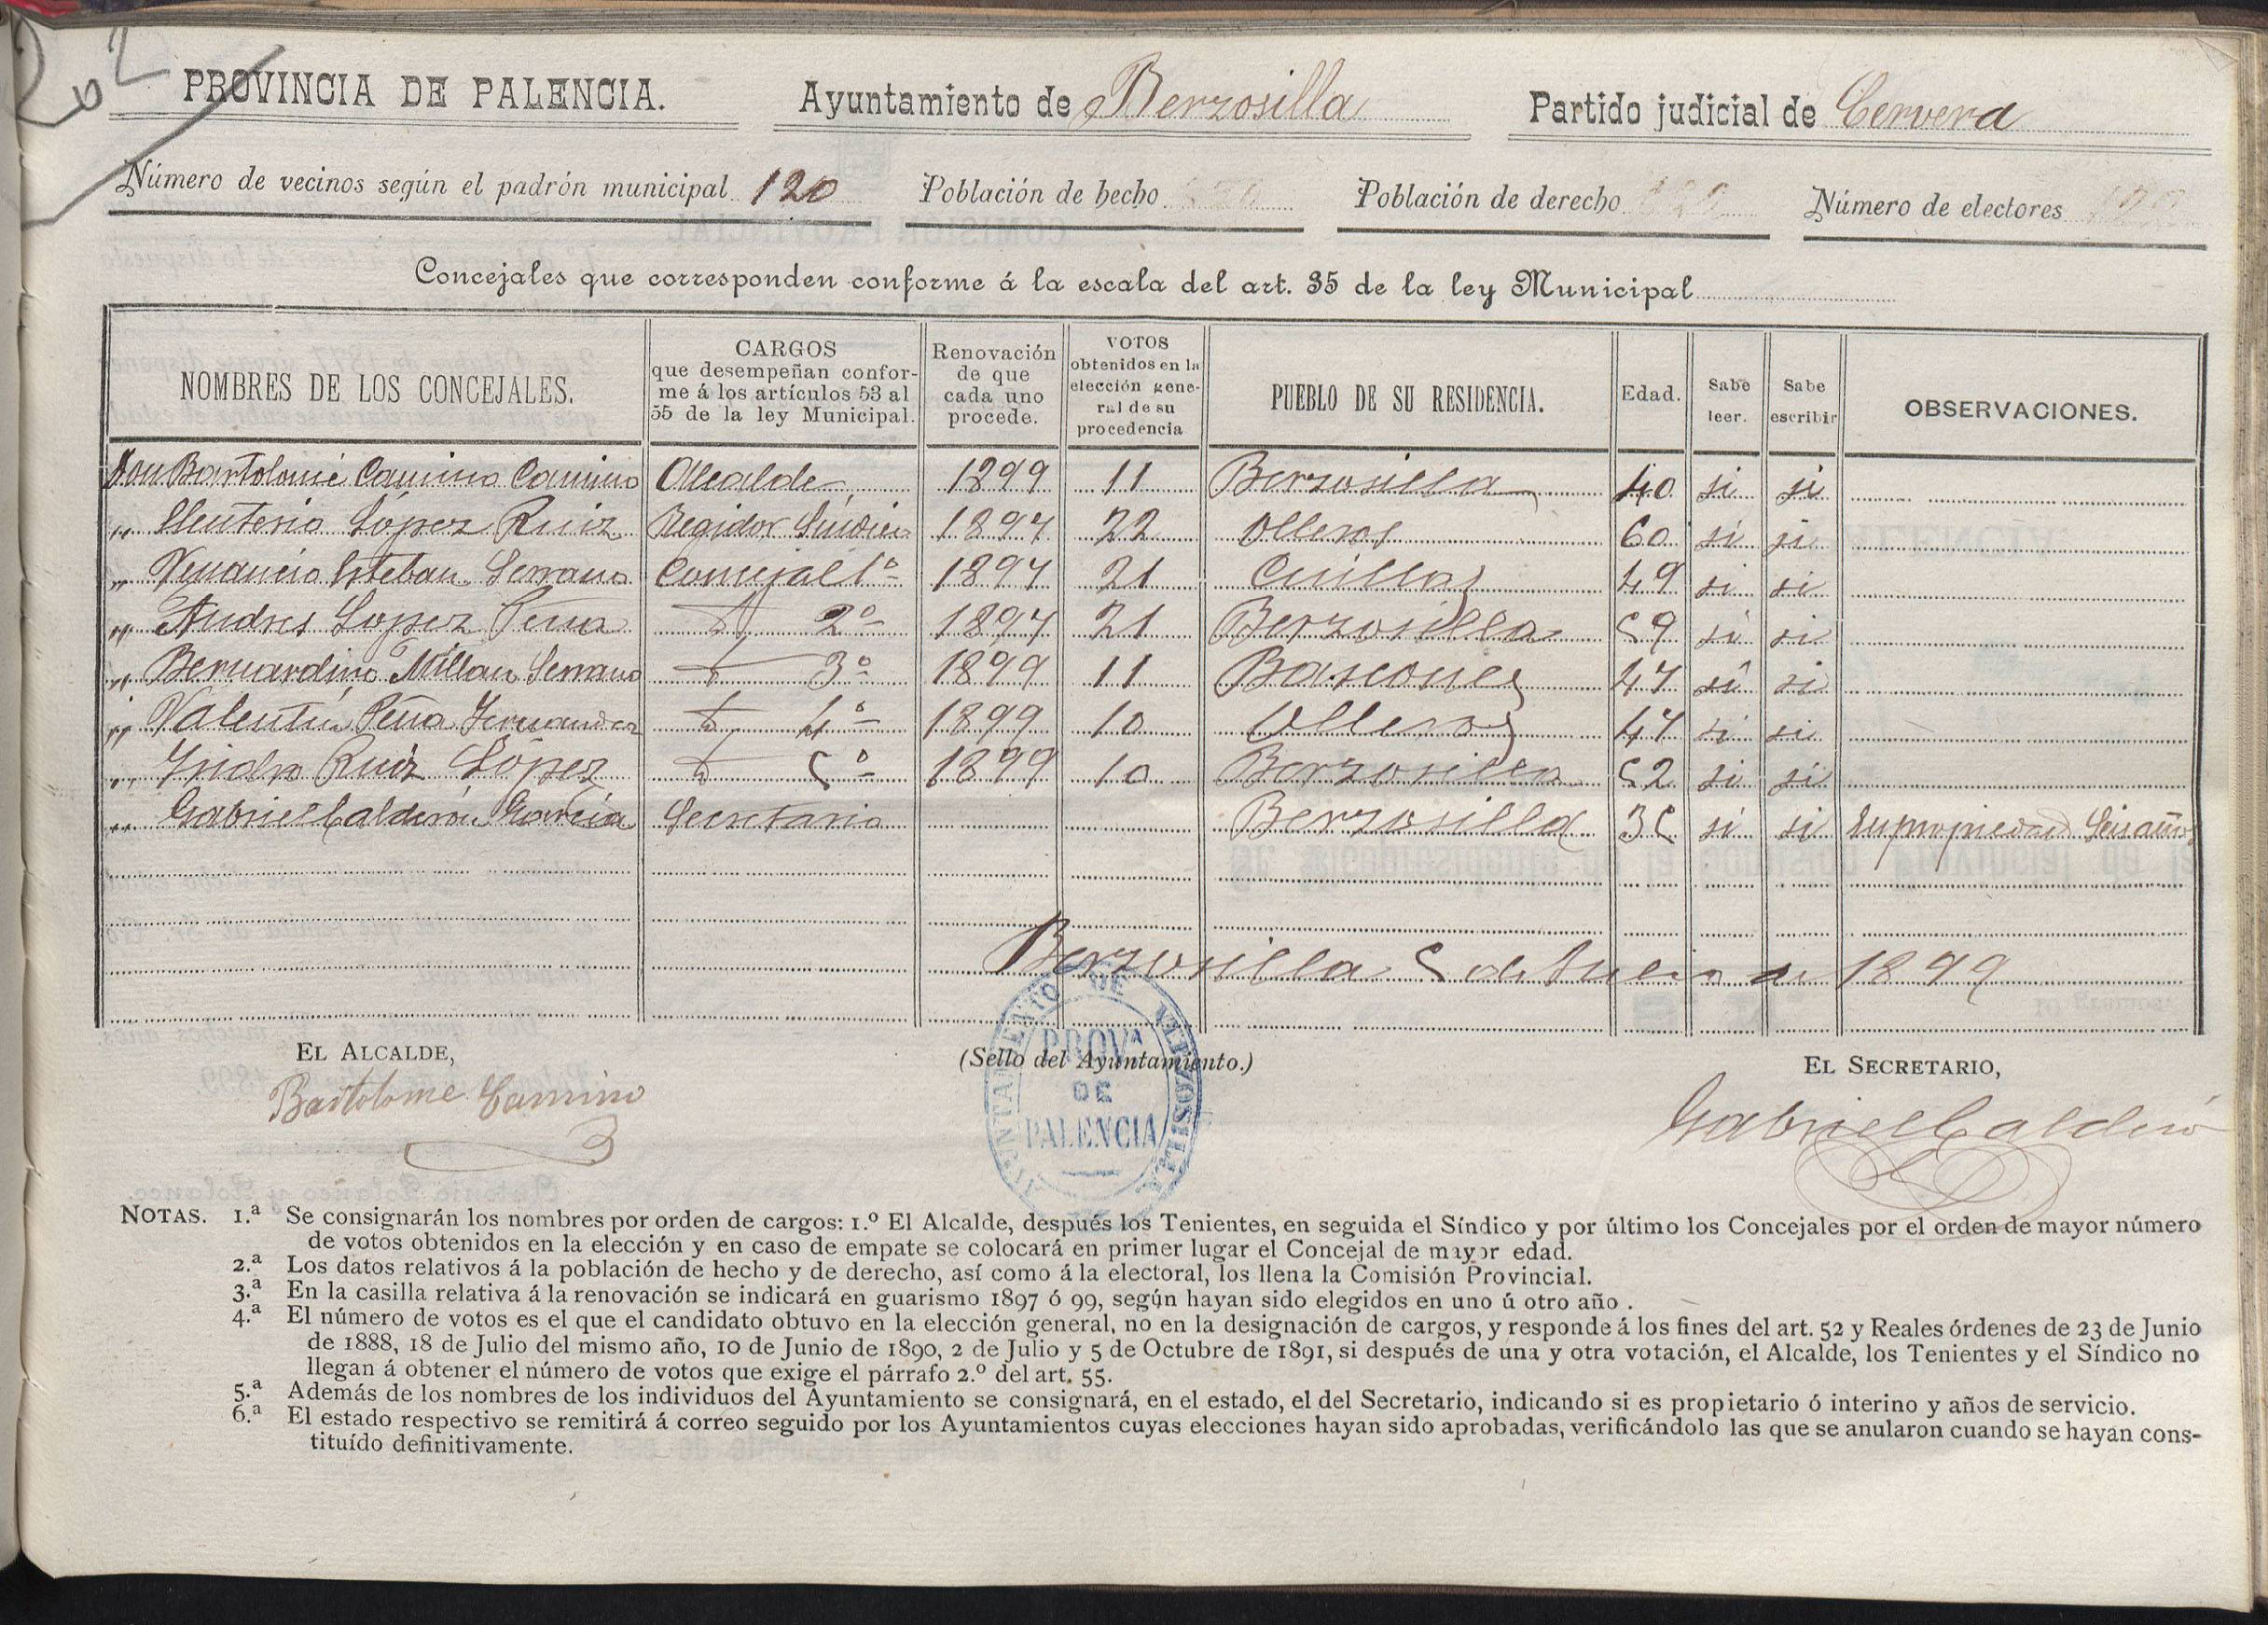 202
PROVINCIA DE PALENCIA. Ayuntamiento de Berzosilla Partido judicial de Cervera
Número de vecinos según el padrón municipal 120 Población de hecho Población de derecho Número de electores
Concejales que corresponden conforme á la escala del art. 35 de la ley Municipal
NOMBRES DE LOS CONCEJALES. CARGOS que desempeñan confor-me á los artículos 53 al 55 de la ley Municipal. Renovación de que cada uno procede. VOTOS obtenidos en la elección gene-ral de su procedencia PUEBLO DE SU RESIDENCIA. Edad. Sabe leer. Sabe escribir OBSERVACIONES.
Don Bartolomé Camino Camino Alcalde 1899 11 Berzosilla 40 si si
„ Eleuterio López Ruiz Regidor Síndico 1897 22 Olleros 60 si si
„ Venancio Esteban Serrano Concejal 1º 1897 21 Cuillas 49 si si
„ Andres Lopez Peña 2º 1897 21 Berzosilla 59 si si
„ Bernardino Millan Serrano 3º 1899 11 Bascones 47 si si
„ Valentín Peña Fernandez 4º 1899 10 Olleros 47 si si
„ Ysidro Ruiz López 5º 1899 10 Berzosilla 52 si si
„ Gabriel Calderón García Secretario Berzosilla 35 si si En propiedad Seis años
Berzosilla 5 de Julio de 1899
EL ALCALDE, (Sello del Ayuntamiento.) EL SECRETARIO,
Bartolome Camino Gabriel Calderón
AYUNTAMIENTO DE BERZOSILLA
PROVª
DE
PALENCIA
NOTAS. 1.ª Se consignarán los nombres por orden de cargos: 1.º El Alcalde, después los Tenientes, en seguida el Síndico y por último los Concejales por el orden de mayor número
de votos obtenidos en la elección y en caso de empate se colocará en primer lugar el Concejal de mayor edad.
2.ª Los datos relativos á la población de hecho y de derecho, así como á la electoral, los llena la Comisión Provincial.
3.ª En la casilla relativa á la renovación se indicará en guarismo 1897 ó 99, según hayan sido elegidos en uno ú otro año .
4.ª El número de votos es el que el candidato obtuvo en la elección general, no en la designación de cargos, y responde á los fines del art. 52 y Reales órdenes de 23 de Junio
de 1888, 18 de Julio del mismo año, 10 de Junio de 1890, 2 de Julio y 5 de Octubre de 1891, si después de una y otra votación, el Alcalde, los Tenientes y el Síndico no
llegan á obtener el número de votos que exige el párrafo 2.º del art. 55.
5.ª Además de los nombres de los individuos del Ayuntamiento se consignará, en el estado, el del Secretario, indicando si es propietario ó interino y años de servicio.
6.ª El estado respectivo se remitirá á correo seguido por los Ayuntamientos cuyas elecciones hayan sido aprobadas, verificándolo las que se anularon cuando se hayan cons-
tituído definitivamente.